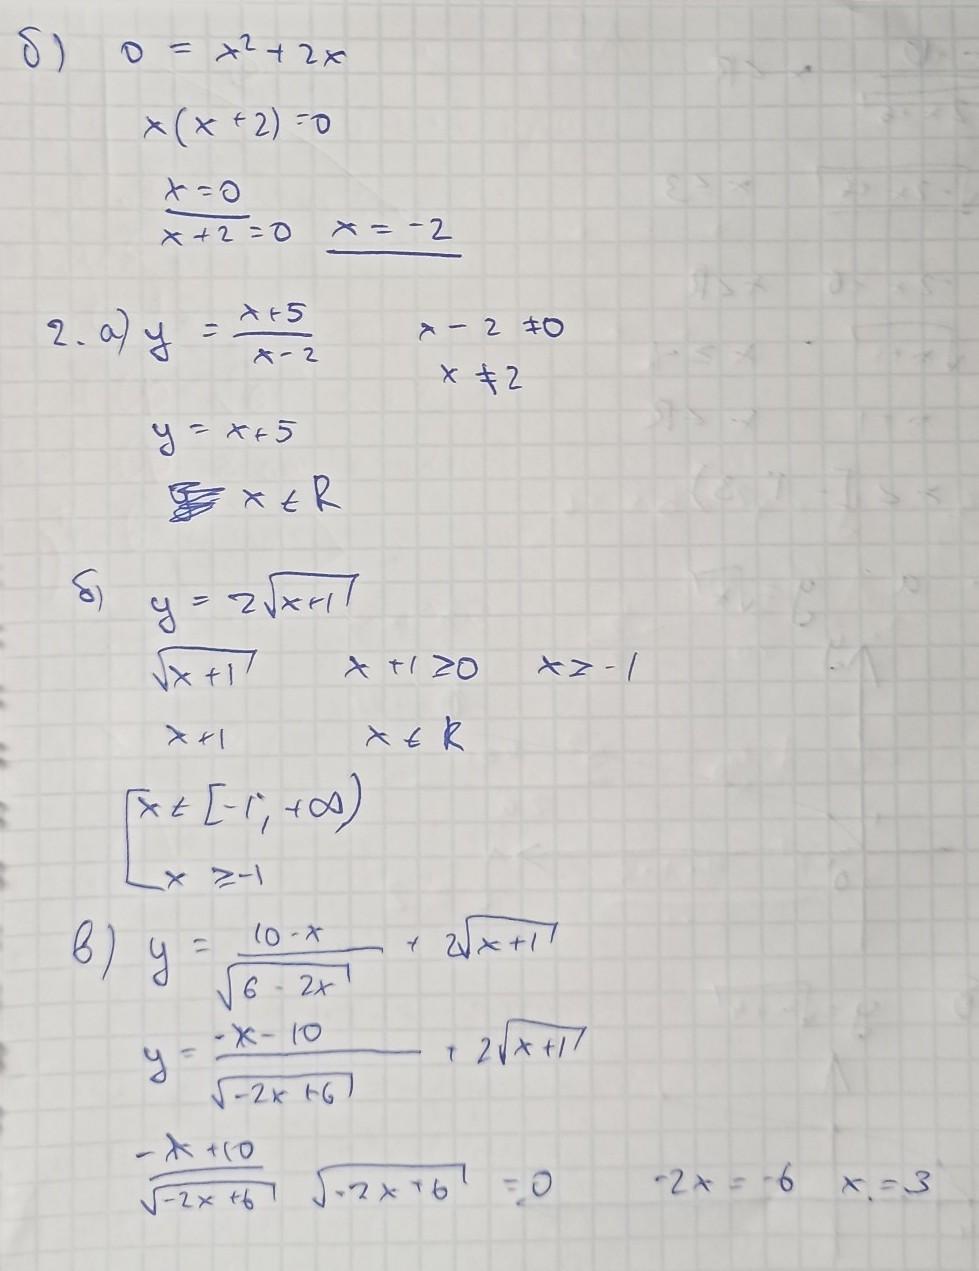 б) 0 = x² + 2x
x(x + 2) = 0
x = 0
x + 2 = 0 x = -2
2. а) y = (x+5)/(x-2) x - 2 ≠ 0
x ≠ 2
y = x+5
x ∈ R
б) y = 2√(x+1)
√(x+1) x + 1 ≥ 0 x ≥ -1
x+1 x ∈ R
[x ∈ [-1; +∞)
x ≥ -1
в) y = (10-x)/√(6-2x) + 2√(x+1)
y = (-x-10)/√(-2x+6) + 2√(x+1)
(-x+10)/√(-2x+6) √(-2x+6) = 0 -2x = -6 x = 3